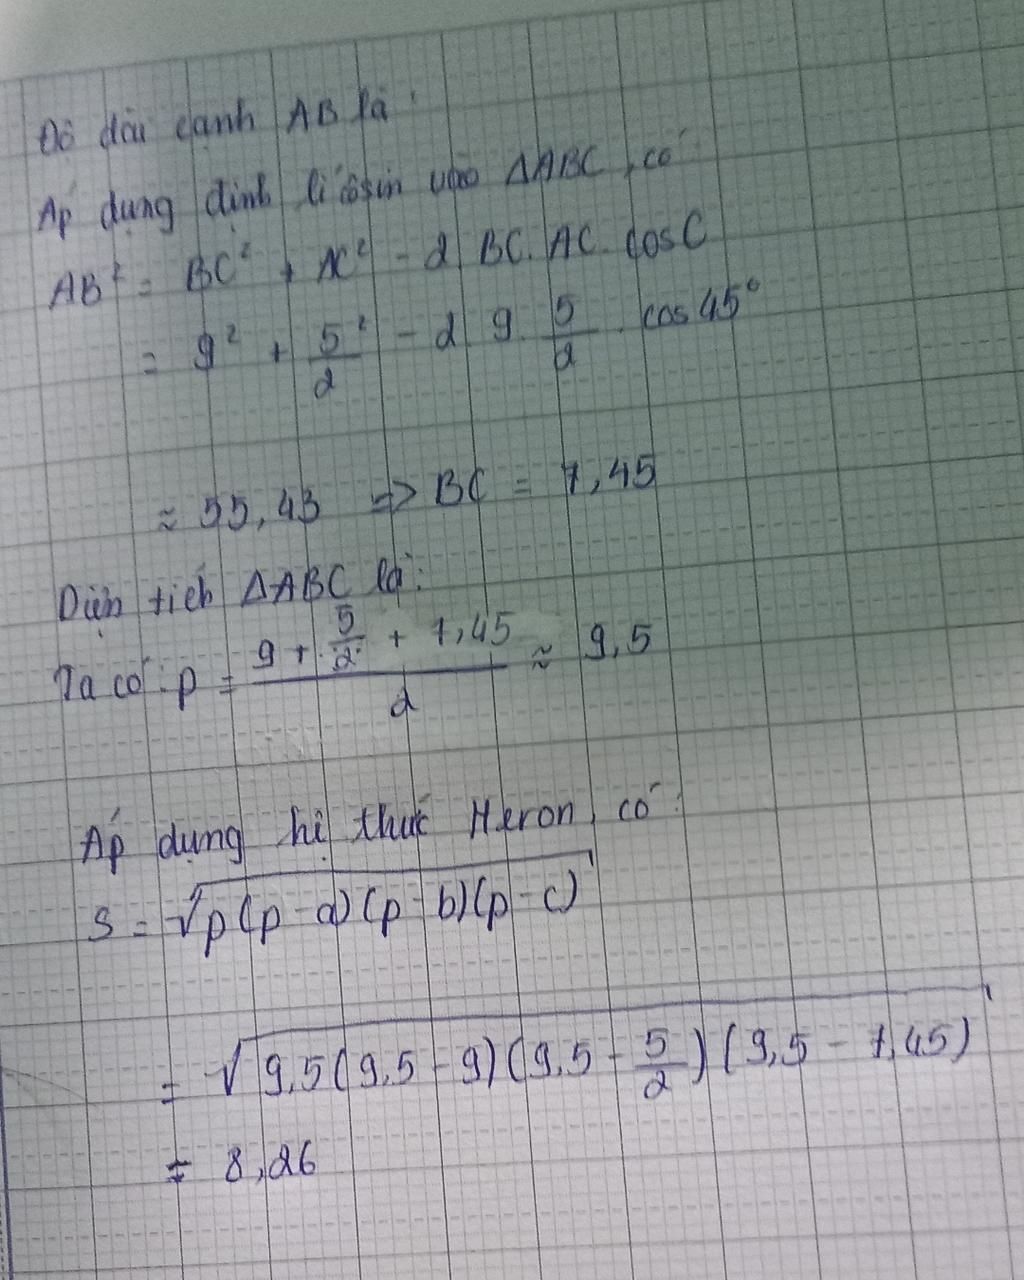 Độ dài cạnh AB là:
Áp dụng định lí côsin vào ΔABC, có
AB² = BC² + AC² - 2 BC. AC. cosC
= 9² + 5²/2 - 2 9. 5/2 . cos 45°
≈ 55,43 => BC = 7,45
Diện tích ΔABC là:
Ta có: p = (9 + 5/2 + 7,45)/2 ≈ 9,5
Áp dụng hệ thức Heron, có:
S = √p(p-a)(p-b)(p-c)
= √9,5(9,5-9)(9,5-5/2)(9,5-7,45)
= 8,26